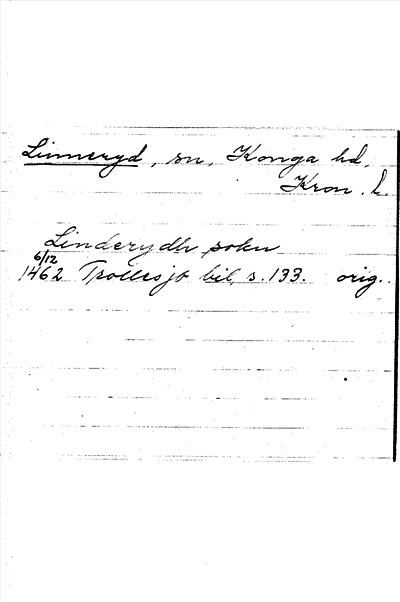 Linneryd, sn, Konga hd,
Kron. l.
Linderydh sokn
6/12
1462 Trollesjö bil, s. 133. orig.